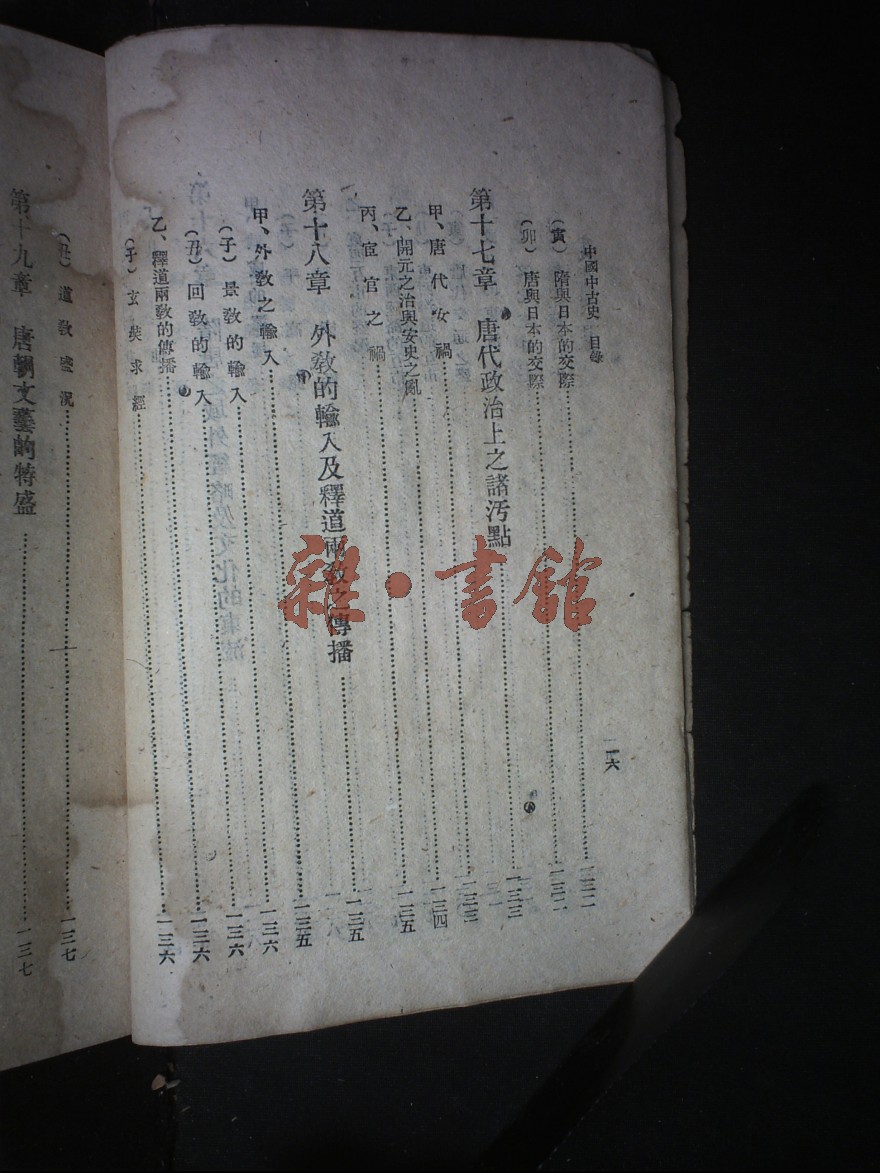 中國中古史 目錄 一六
(寅)隋與日本的交際……一三二
(卯)唐與日本的交際……一三二
第十七章 唐代政治上之諸汚點……一三三
甲、唐代女禍……一三三
乙、開元之治與安史之亂……一三四
丙、宦官之禍……一三五
第十八章 外敎的輸入及釋道兩敎之傳播……一三五
甲、外敎之輸入……一三五
(子)景敎的輸入……一三六
(丑)回敎的輸入……一三六
乙、釋道兩敎的傳播……一三六
(子)玄奘求經……一三六
(丑)道敎盛況……一三七
第十九章 唐朝文藝的特盛……一三七
雜·書館